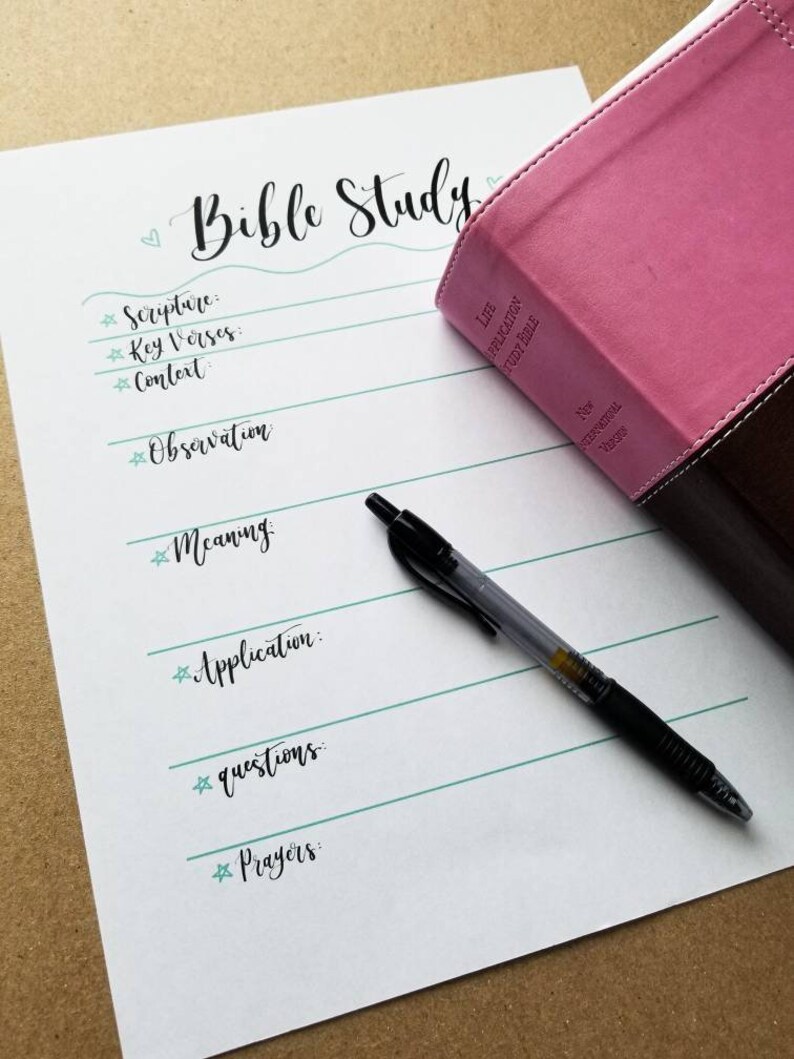 Bible Study
Scripture:
Key Verses:
Context:
Observation:
Meaning:
Application:
questions:
Prayers:
LIFE
APPLICATION
STUDY BIBLE
NEW
INTERNATIONAL
VERSION